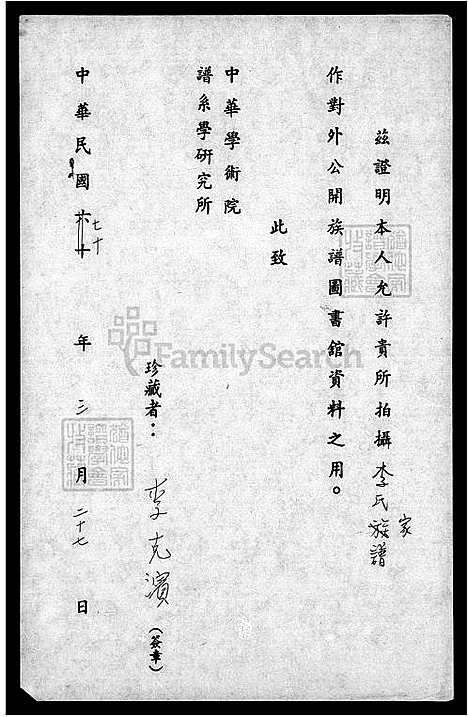 茲證明本人允許貴所拍攝李氏家族譜
作對外公開族譜圖書館資料之用。
此致
中華學術院
譜系學研究所
珍藏者：李克濱（簽章）
中華民國六十七十年三月二十七日
FamilySearch